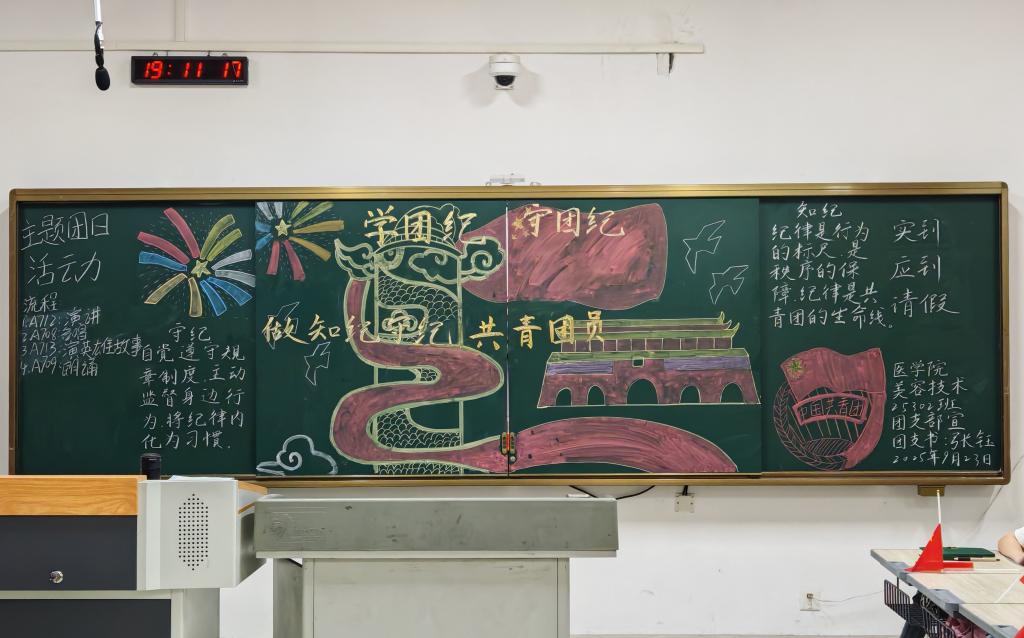 19:11 17
主题团日
活动
流程
1.A112:演讲
2.A108:
3.A113:演英雄故事
4.A109:朗诵
守纪
自觉遵守规
章制度.主动
监督身边行
为.将纪律内
化为习惯.
学团纪 守团纪
做知纪守纪 共青团员
知纪
纪律是行为
的标尺.是
秩序的保
障.纪律是共
青团的生命线。
实到
应到
请假
中国共青团
医学院
美容技术
25302班
团支部宣
团支书:张钰
2025年9月23日